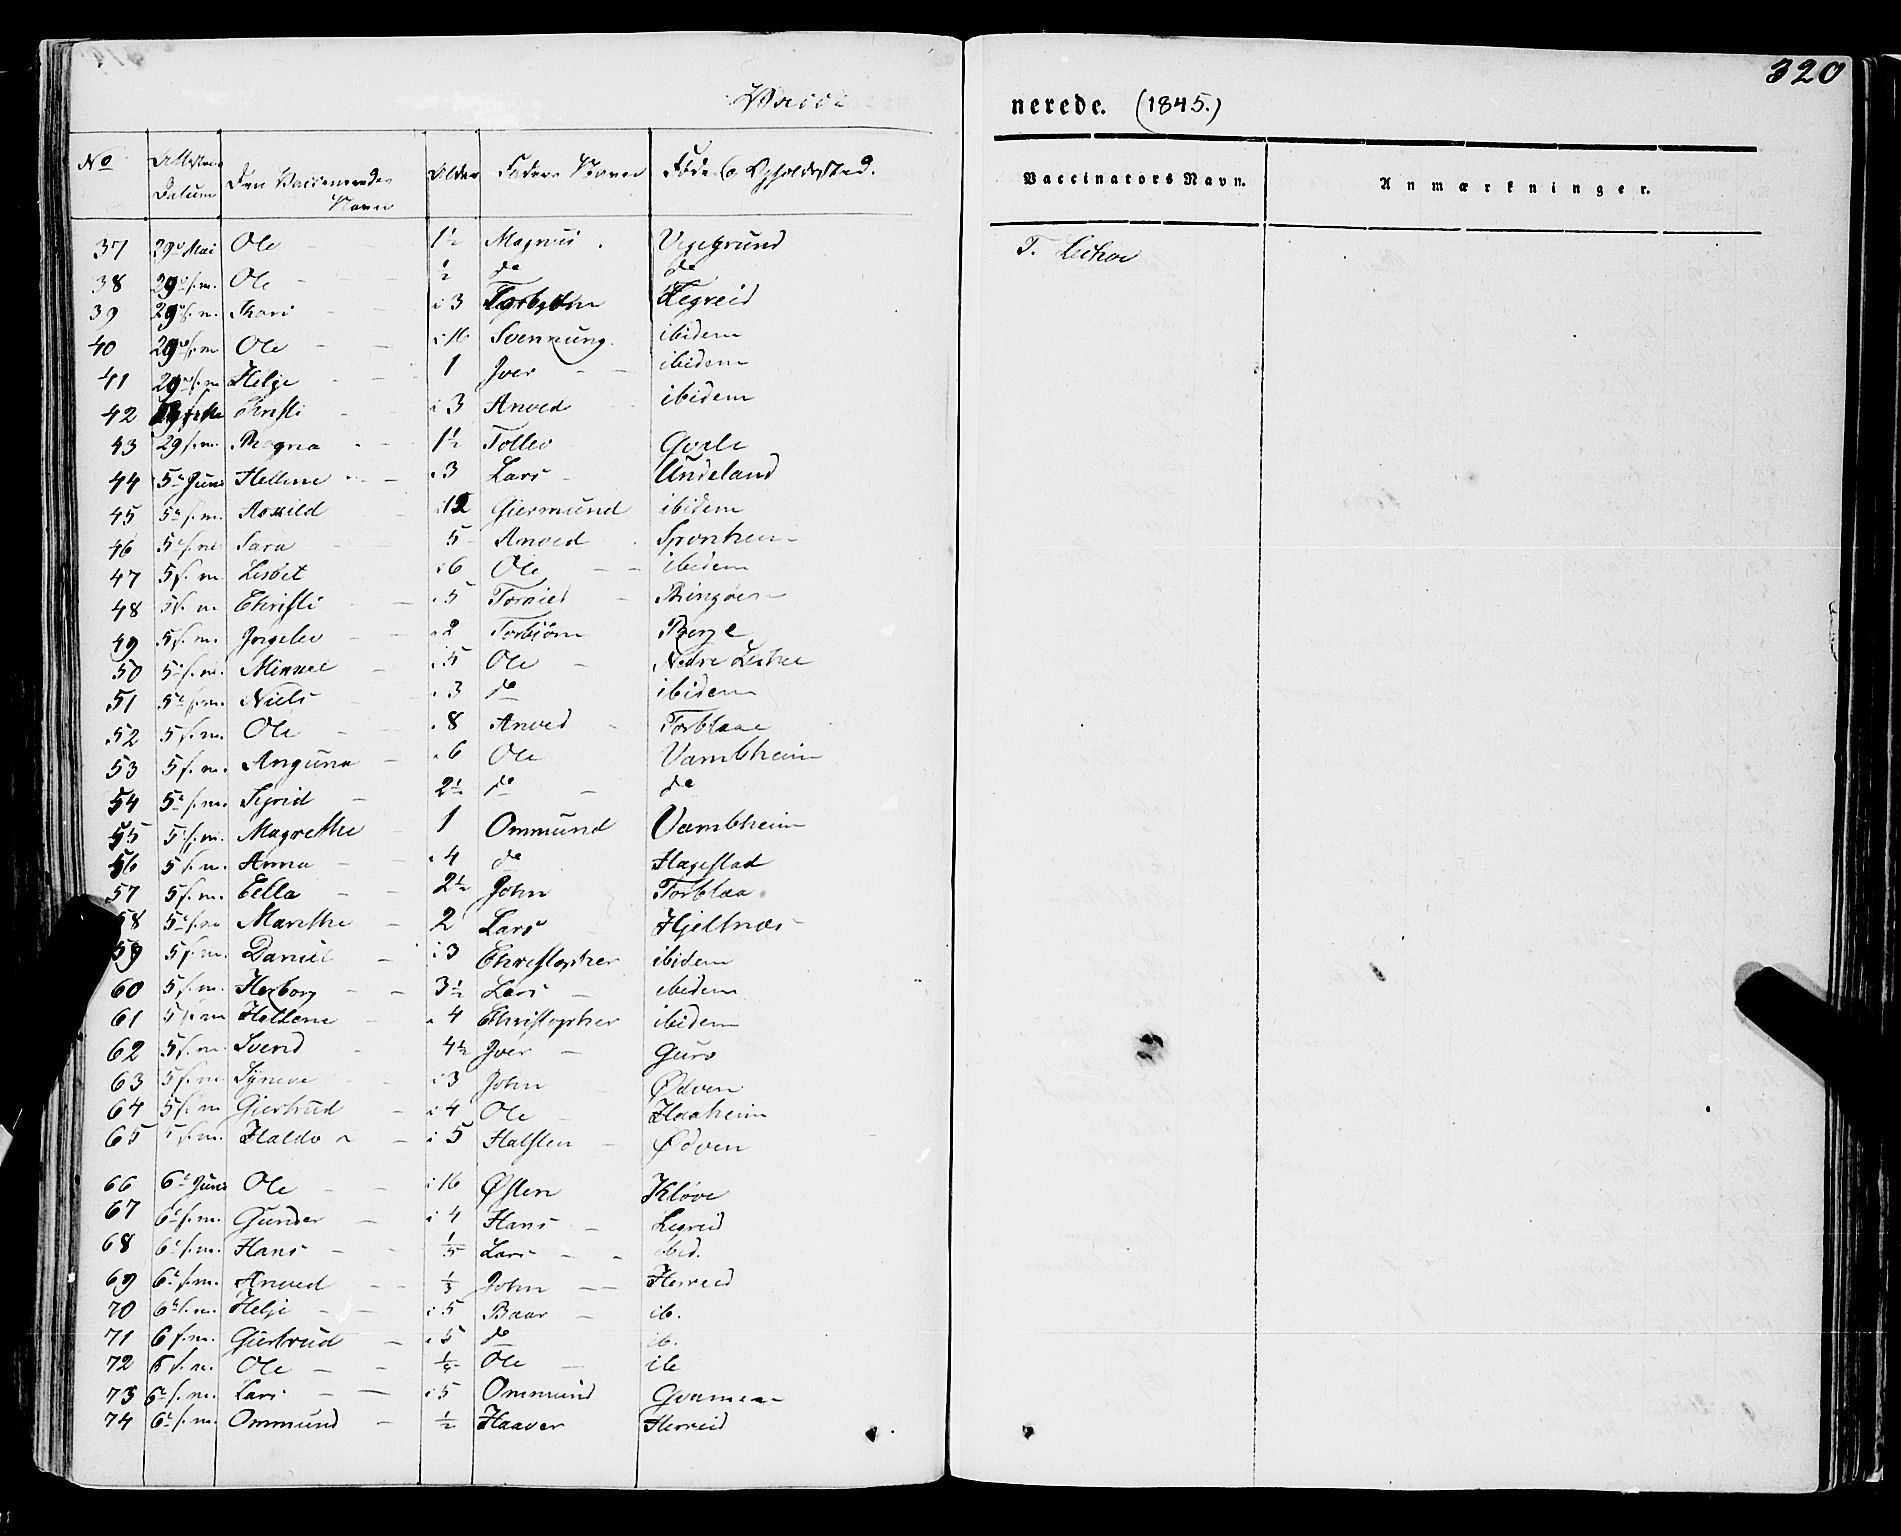 320
Vacci
nerede. (1845.)
No Attestens Datum Den Vaccineredes Navn Alder Faders Navn Føde og Opholdssted.
Vaccinators Navn. Anmærkninger.
37 29de Mai Ole 1½ Magnus Vegetgrund T. Lekve
38 29de s. m. Ole ½ do do
39 29de s. m. Kari i 3 Torbjørn Legreid
40 29de s. m. Ole i 16 Svennung ibidem
41 29de s. m. Helje 1 Iver ibidem
42 Christi i 3 Anved ibidem
43 29 s. m. Ragna 1½ Tollev Qvale
44 5te Juni Hellene 3 Lars Undeland
45 5te s. m. 12 Giermund ibidem
46 5te s. m. Sara 5 Anved Sponhei
47 5 s. m. Lisbet i 6 Ole ibidem
48 5 s. m. Christi 5 Ringøen
49 5 s. m. Ingelev 2 Torbiørn Berge
50 5te s. m. Mikkel i 5 Ole Nedre Lekve
51 5te s. m. Niels 3 do ibidem
52 5 s. m. Ole 8 Anved Torblaae
53 5 s. m. Anguna 6 Ole Vambheim
54 5te s. m. Sigrid 2½ do do
55 5 s. m. Magrethe 1 Ommund Vambheim
56 5 s. m. Anna 4 do Hagestad
57 5 s. m. Eilla 2½ John Torblaa
58 5te s. m. Marethe 2 Lars Hjeltnæs
59 5 s. m. Daniel i 3 Christopher ibidem
60 5 s. m. Herborg 3½ Lars ibidem
61 5 s. m. Hellene 4 Christopher ibidem
62 5 s. m. Svend 4½ Iver Guro
63 5 s. m. Syneve i 3 John Ødven
64 5 s. m. Giertrud i 4 Ole Haaheim
65 5 s. m. Haldor i 5 Halsten Ødven
66 6te Juni Ole i 16 Østen Kløve
67 6te s. m. Gunder i 4 Hans Legreid
68 6te s. m. Hans 1/5 Lars ibid.
69 6te s. m. Anved 1/3 John Herreid
70 6te s. m. Helje i 5 Baar ib.
71 6 s. m. Giertrud i 5 do ib.
72 6 s. m. Ole Ole ib
73 6te s. m. Lars i 5 Ommund Qvamen
74 6te s. m. Ommund ½ Haaver Herreid